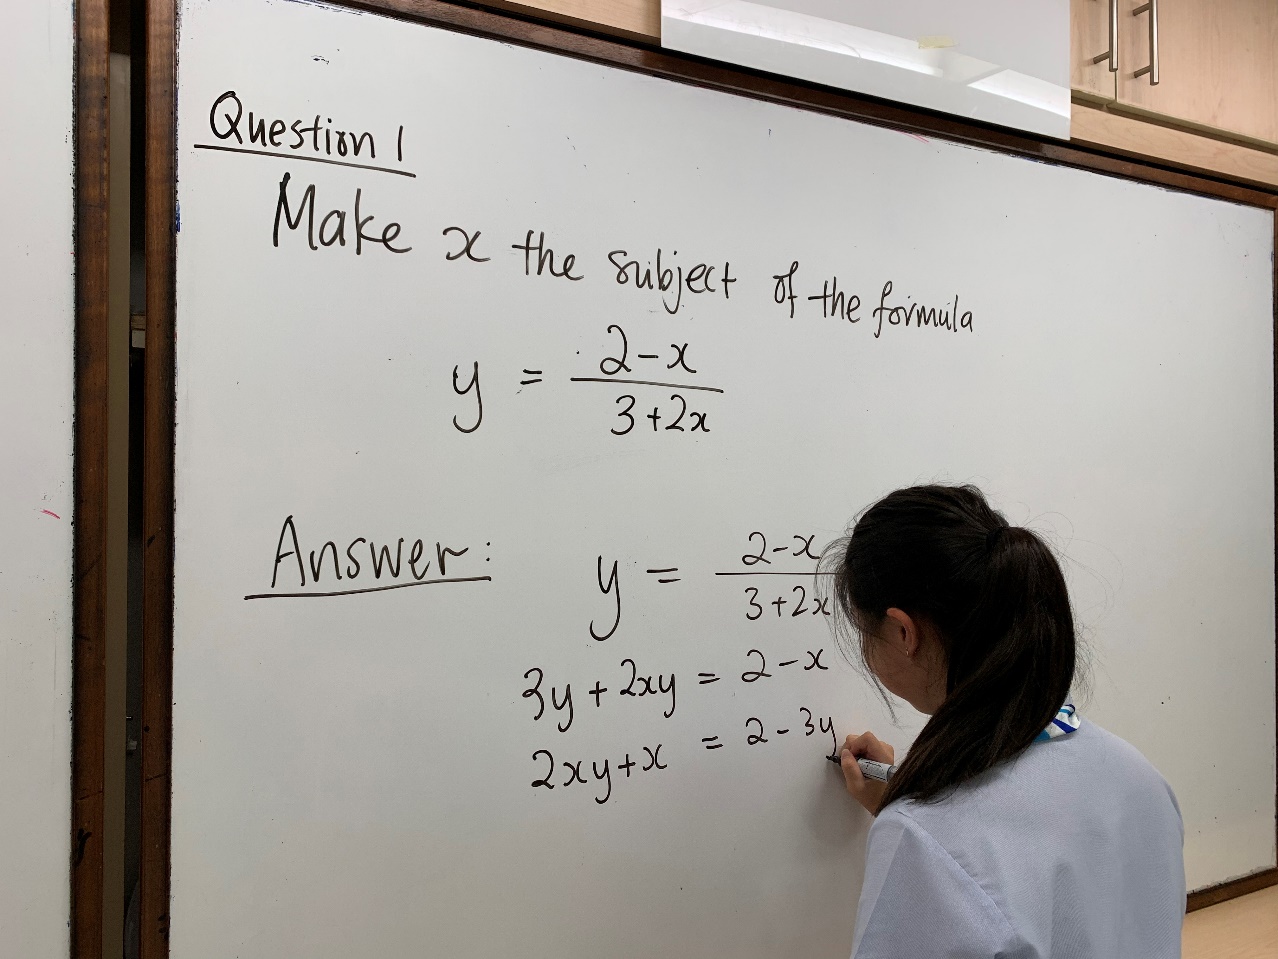 Question 1
Make x the subject of the formula
y = 2-x / 3+2x
Answer: y = 2-x / 3+2x
3y + 2xy = 2 - x
2xy + x = 2 - 3y